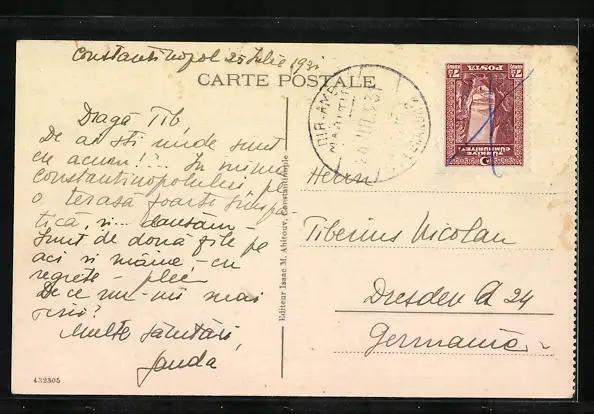 Constantinopol 25 Iulie 1931
CARTE POSTALE
Dragă Tib,
De ai sti unde sunt
eu acum!.. In inima
Constantinopolului, pe
o terasă foarte simpa-
tică, si... dansăm -
Sunt de două zile pe
aci si mâine - cu
regrete - plec
De ce nu-mi mai
scrii?
Multe salutări,
Janda
432305
Editeur Isaac M. Ahitouv, Constantinople
POSTA
TÜRKİYE
CUMHURİYETİ
Herrn
Tiberius Nicolau
Dresden A 24
Germania